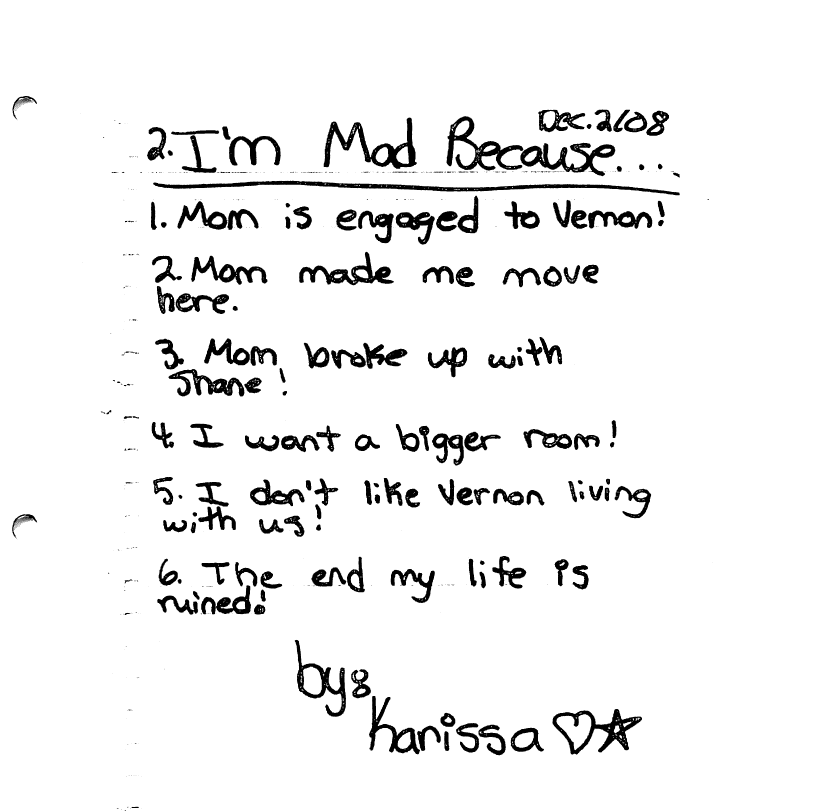 Dec. 2/08
2. I'm Mad Because...
1. Mom is engaged to Vernon!
2. Mom made me move
here.
3. Mom broke up with
Shane!
4. I want a bigger room!
5. I don't like Vernon living
with us!
6. The end my life is
ruined!
by:
Karissa ♡☆